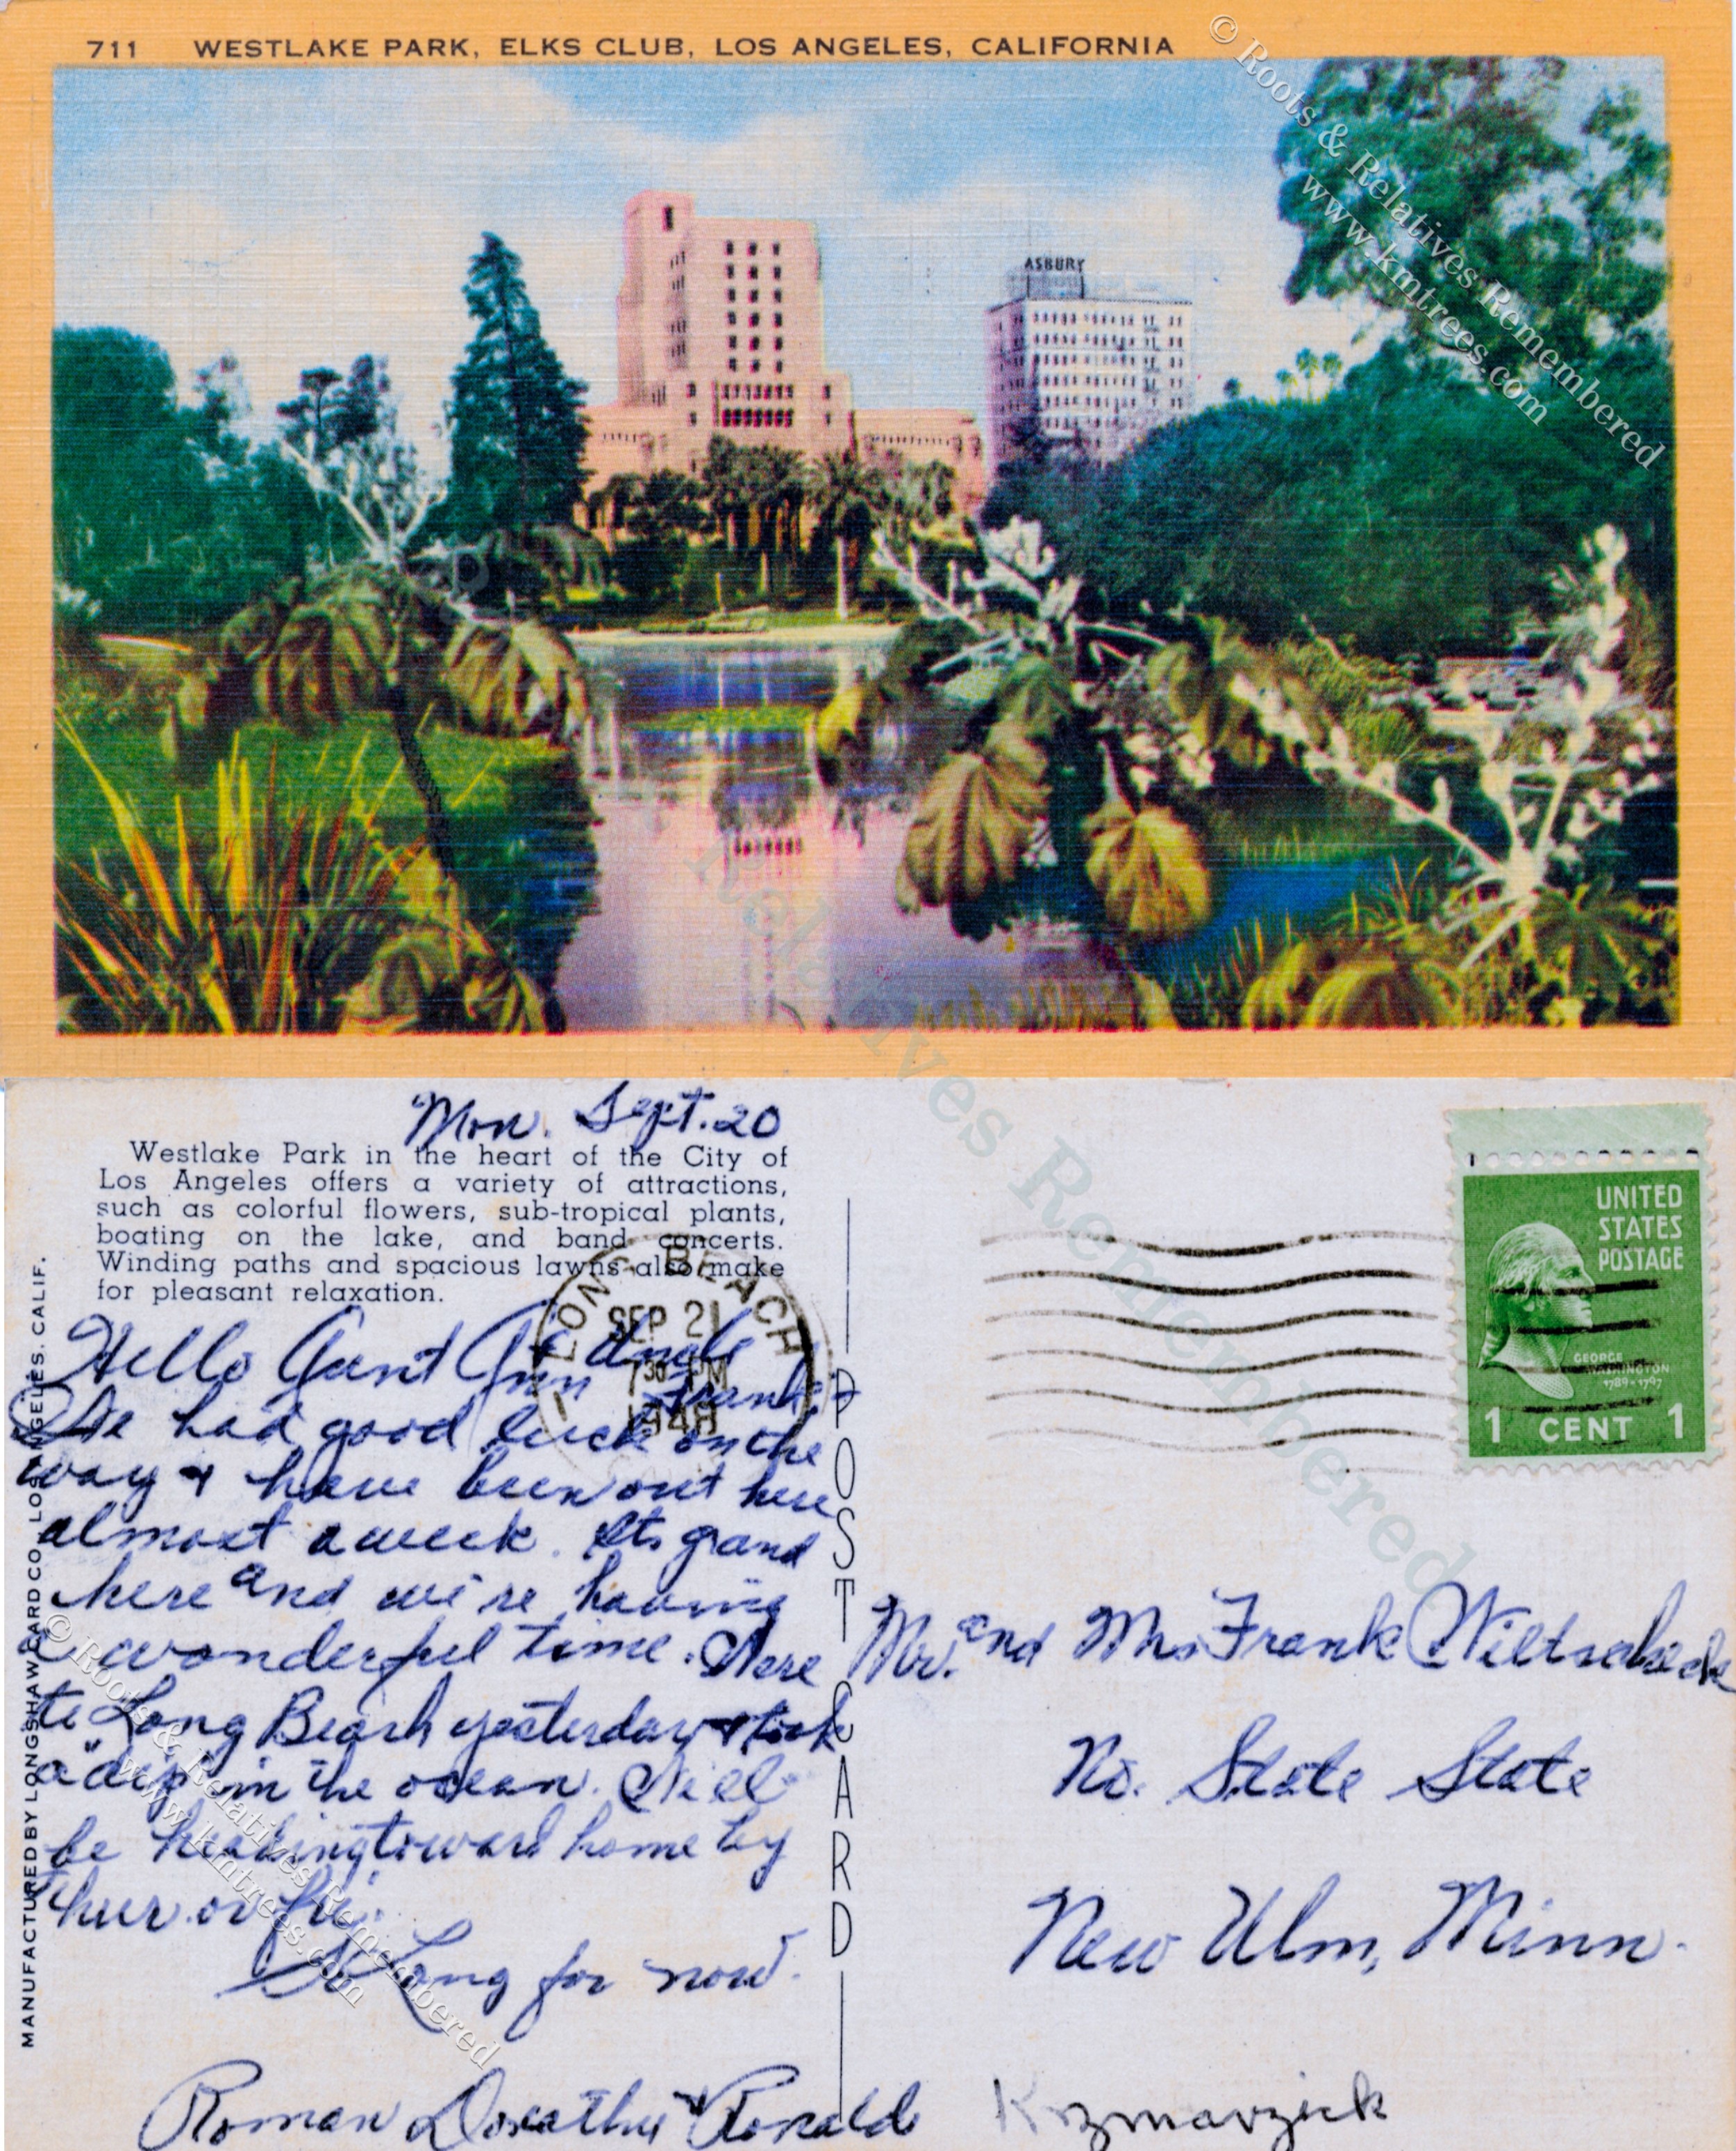 711 WESTLAKE PARK, ELKS CLUB, LOS ANGELES, CALIFORNIA
© Roots & Relatives Remembered
www.kmtrees.com
ASBURY
Mon. Sept. 20
Westlake Park in the heart of the City of
Los Angeles offers a variety of attractions,
such as colorful flowers, sub-tropical plants,
boating on the lake, and band concerts.
Winding paths and spacious lawns also make
for pleasant relaxation.
LONG BEACH
SEP 21
7 30 PM
1948
Hello Aunt Ann & Uncle
Frank:
We had good luck on the
way & have been out here
almost a week. Its grand
here and we're having
a wonderful time. Were
to Long Beach yesterday & took
a "dip" in the ocean. Will
be heading toward home by
Thur. or Fri.
So Long for now.
Roman Dorothy & Ronald
Krzmarzick
MANUFACTURED BY LONGSHAW CARD CO., LOS ANGELES, CALIF.
© Roots & Relatives Remembered
www.kmtrees.com
POST CARD
UNITED
STATES
POSTAGE
GEORGE
WASHINGTON
1789-1797
1 CENT 1
Mr. and Mrs. Frank Wiltscheck
No. State State
New Ulm, Minn.
Relatives Remembered